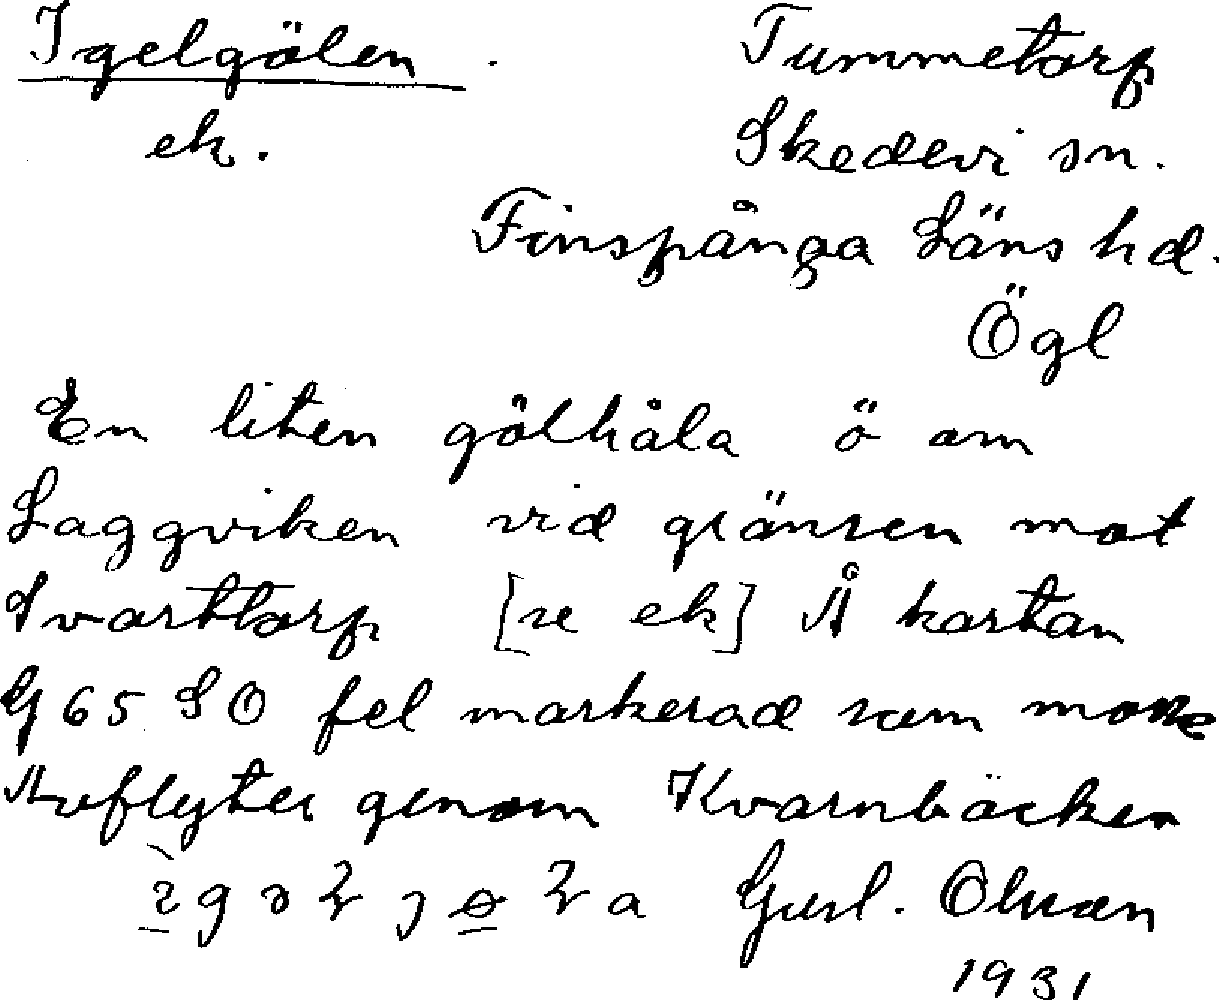 Igelgölen. Tummetorp
ek. Skedevi sn.
Finspånga Läns hd.
Ögl
En liten gölhåla ö om
Laggviken vid gränsen mot
Svarttorp [se ek] Å kartan
G 65 SO fel markerad som mosse
Avflyter genom Kvarnbäcken
Gusl. Olsson
1931